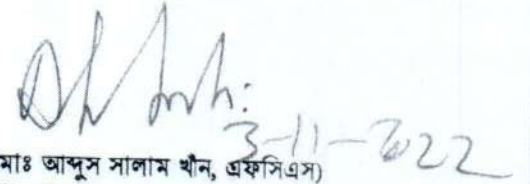 3-11-2022
মোঃ আব্দুস সালাম খান, এফসিএস)